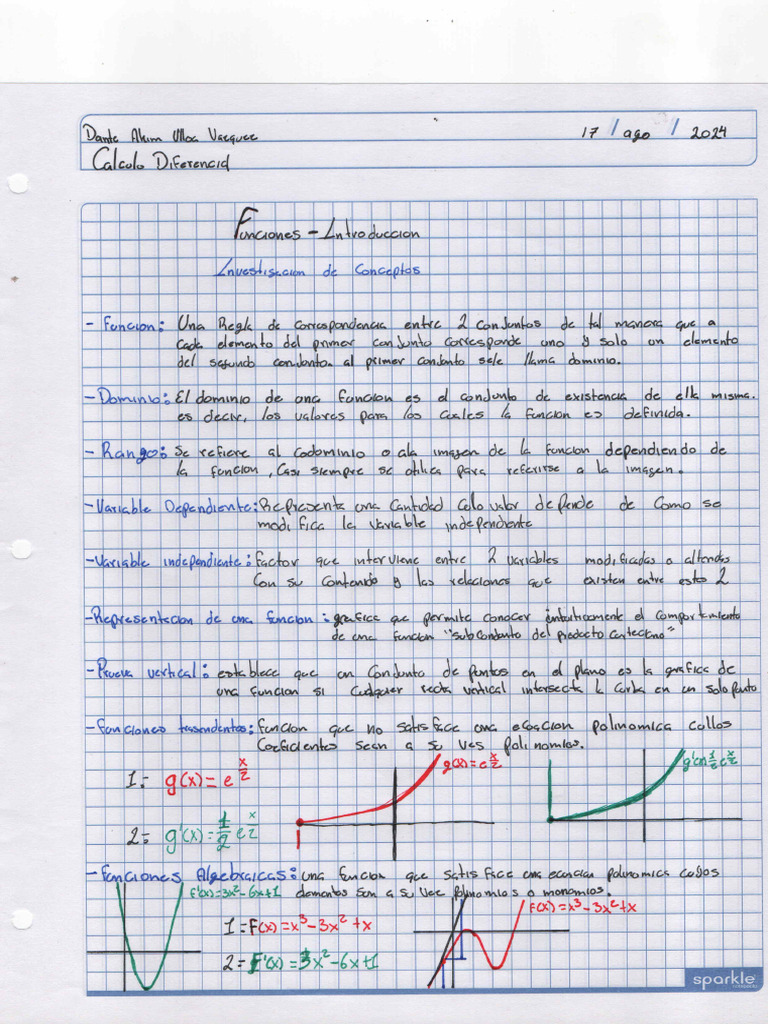 Dante Akim Ulloa Vazquez 17 / ago / 2024
Calculo Diferencial
Funciones - Introduccion
Investigacion de Conceptos
- Funcion: Una Regla de correspondencia entre 2 conjuntos de tal manera que a
cada elemento del primer conjunto corresponde uno y solo un elemento
del segundo conjunto. al primer conjunto sele llama dominio.
- Dominio: El dominio de una funcion es el conjunto de existencia de ella misma.
es decir, los valores para los cuales la funcion es definida.
- Rango: Se refiere al codominio o ala imagen de la funcion dependiendo de
la funcion, Casi siempre se utiliza para referirse a la imagen.
- Variable Dependiente: Representa una Cantidad cullo valor depende de Como se
modifica la variable independiente
- Variable independiente: factor que interviene entre 2 variables modificadas o alteradas
Con su contenido y las relaciones que existen entre estas 2
- Representacion de una funcion: grafica que permite conocer intuitivamente el comportamiento
de una funcion "subconjunto del producto cartesiano"
- Prueva vertical: establece que un Conjunto de puntos en el plano es la grafica de
una funcion si cualquier recta vertical intersecta la curba en un solo punto
- Funciones trasendentes: funcion que no satisface una ecuacion polinomica cullos
Coeficientes sean a su ves polinomios.
1= g(x) = e^{x/2}
g(x) = e^{x/2}
g'(x) 1/2 e^{x/2}
2= g'(x) = 1/2 e^{x/2}
- Funciones Algebraicas: una funcion que satisface una ecuacion polinomica cullos
elementos son a su vez polinomios o monomios.
F'(x)=3x²-6x+1
1= F(x) = x³-3x²+x
F(x) = x³-3x²+x
2= F'(x) = 3x²-6x+1
sparkle